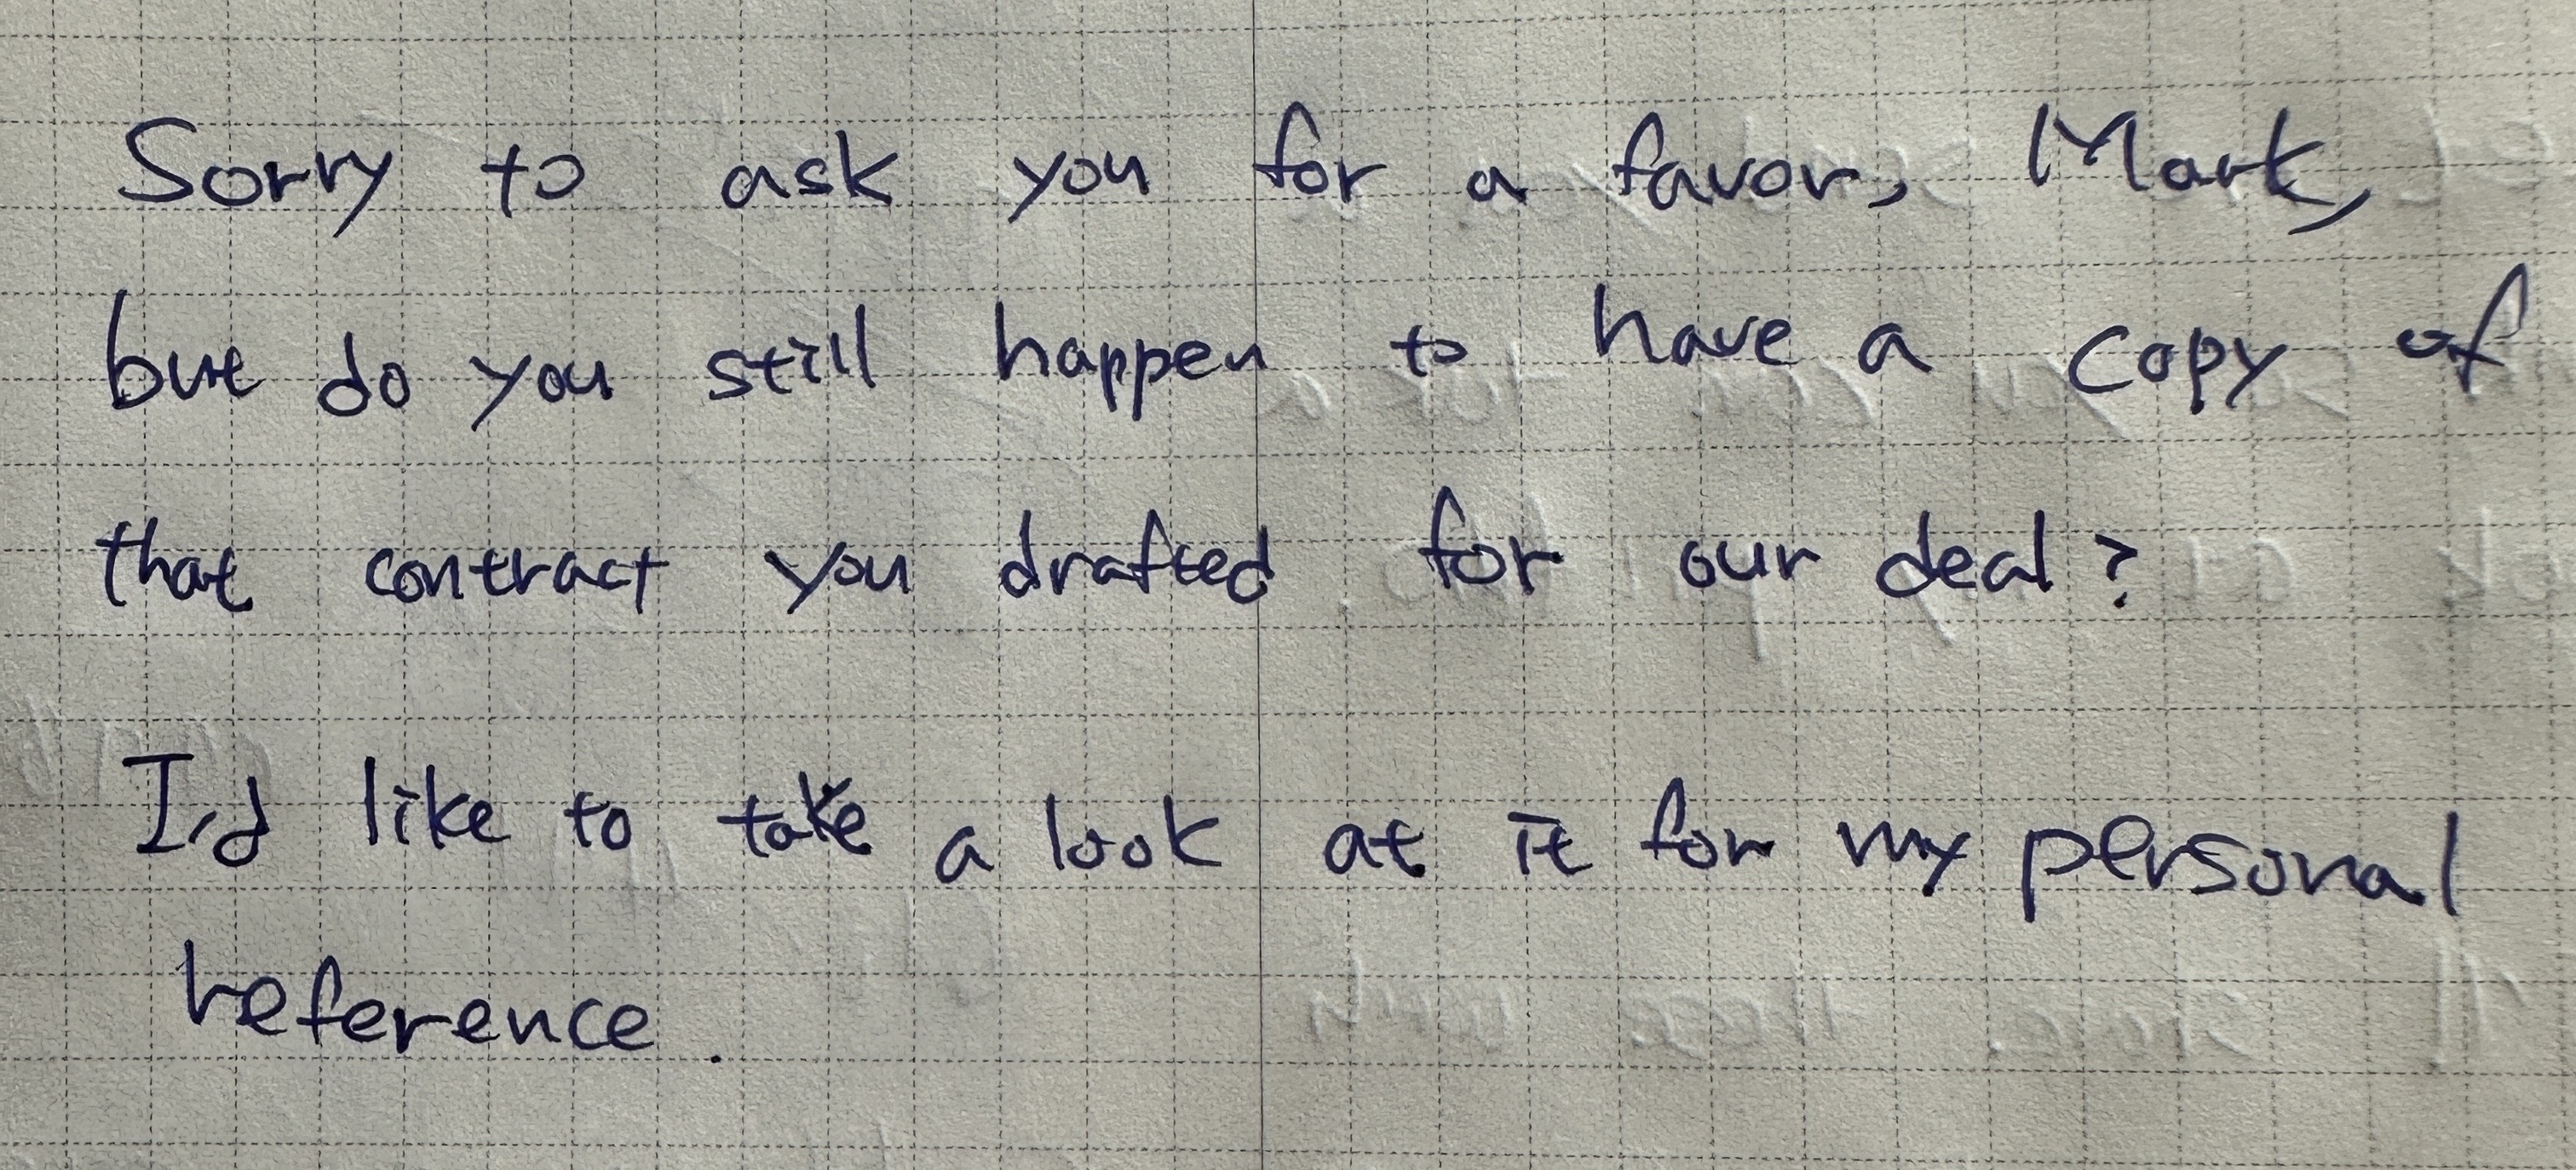 Sorry to ask you for a favor, Mark,
but do you still happen to have a copy of
that contract you drafted for our deal?
I'd like to take a look at it for my personal
reference.